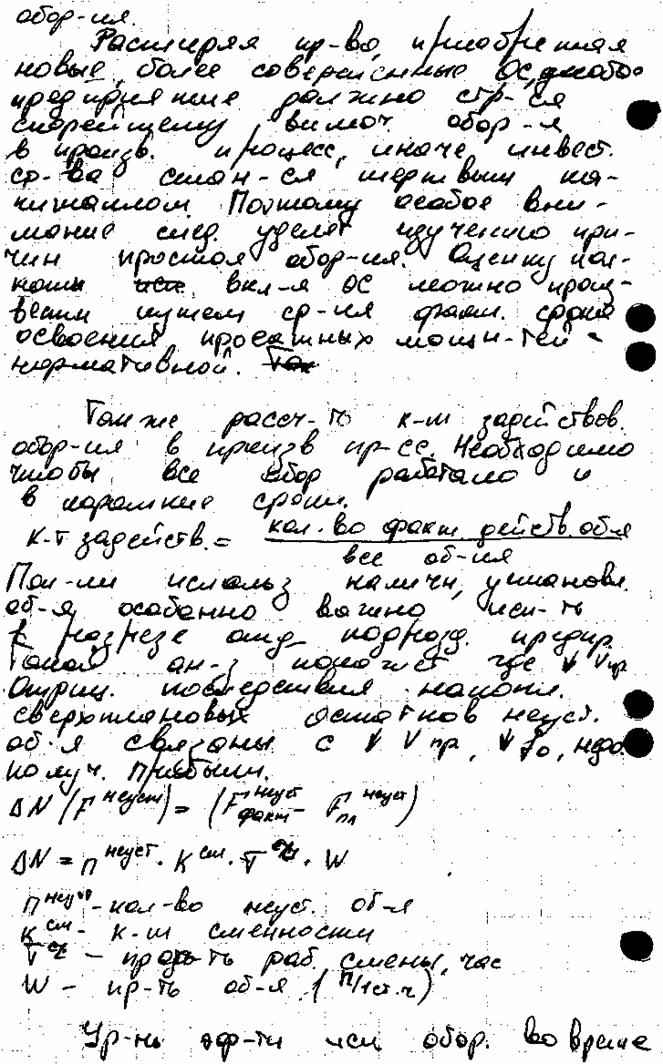 обор-ия.
Расширяя пр-во, приобретая
новые, более совершенные ОС,
предприятие должно стр-ся
скорейшему включ. обор-я
в произв. процесс, иначе инвест.
ср-ва стан-ся мертвым ка-
питалом. Поэтому особое вни-
мание след. уделят изучению при-
чин простоя обор-ия. Оценку пол-
ноты вкл-я ОС можно прои-
вести путем ср-ия факт. срока
освоения проектных мощн-тей с
нормативной. Так
Также рассч-ть к-т задействов.
обор-ия в произв пр-се. Необходимо
чтобы все обор работало и
в короткие сроки.
К-т задейств. = кол-во факт действ. об-я
все об-ия
Пок-ли использ наличн, установл.
об-я особенно важно исч-ть
в разрезе отд. подразд. предпр.
Такой ан-з покажет где ↓ Vпр
Отриц. последствия накопл.
сверхплановых остатков неуст.
об-я связаны с ↓ Vпр, ↓ fо, недо
получ. прибыли.
ΔN (F неуст) = (F неуст факт - F неуст пл)
ΔN = n неуст. K см. T . W
n неуст - кол-во неуст. об-я
K см - к-т сменности
T - прод-ть раб. смены, час
W - пр-ть об-я (п/1ст.ч)
Ур-нь эф-ти исп обор. во време